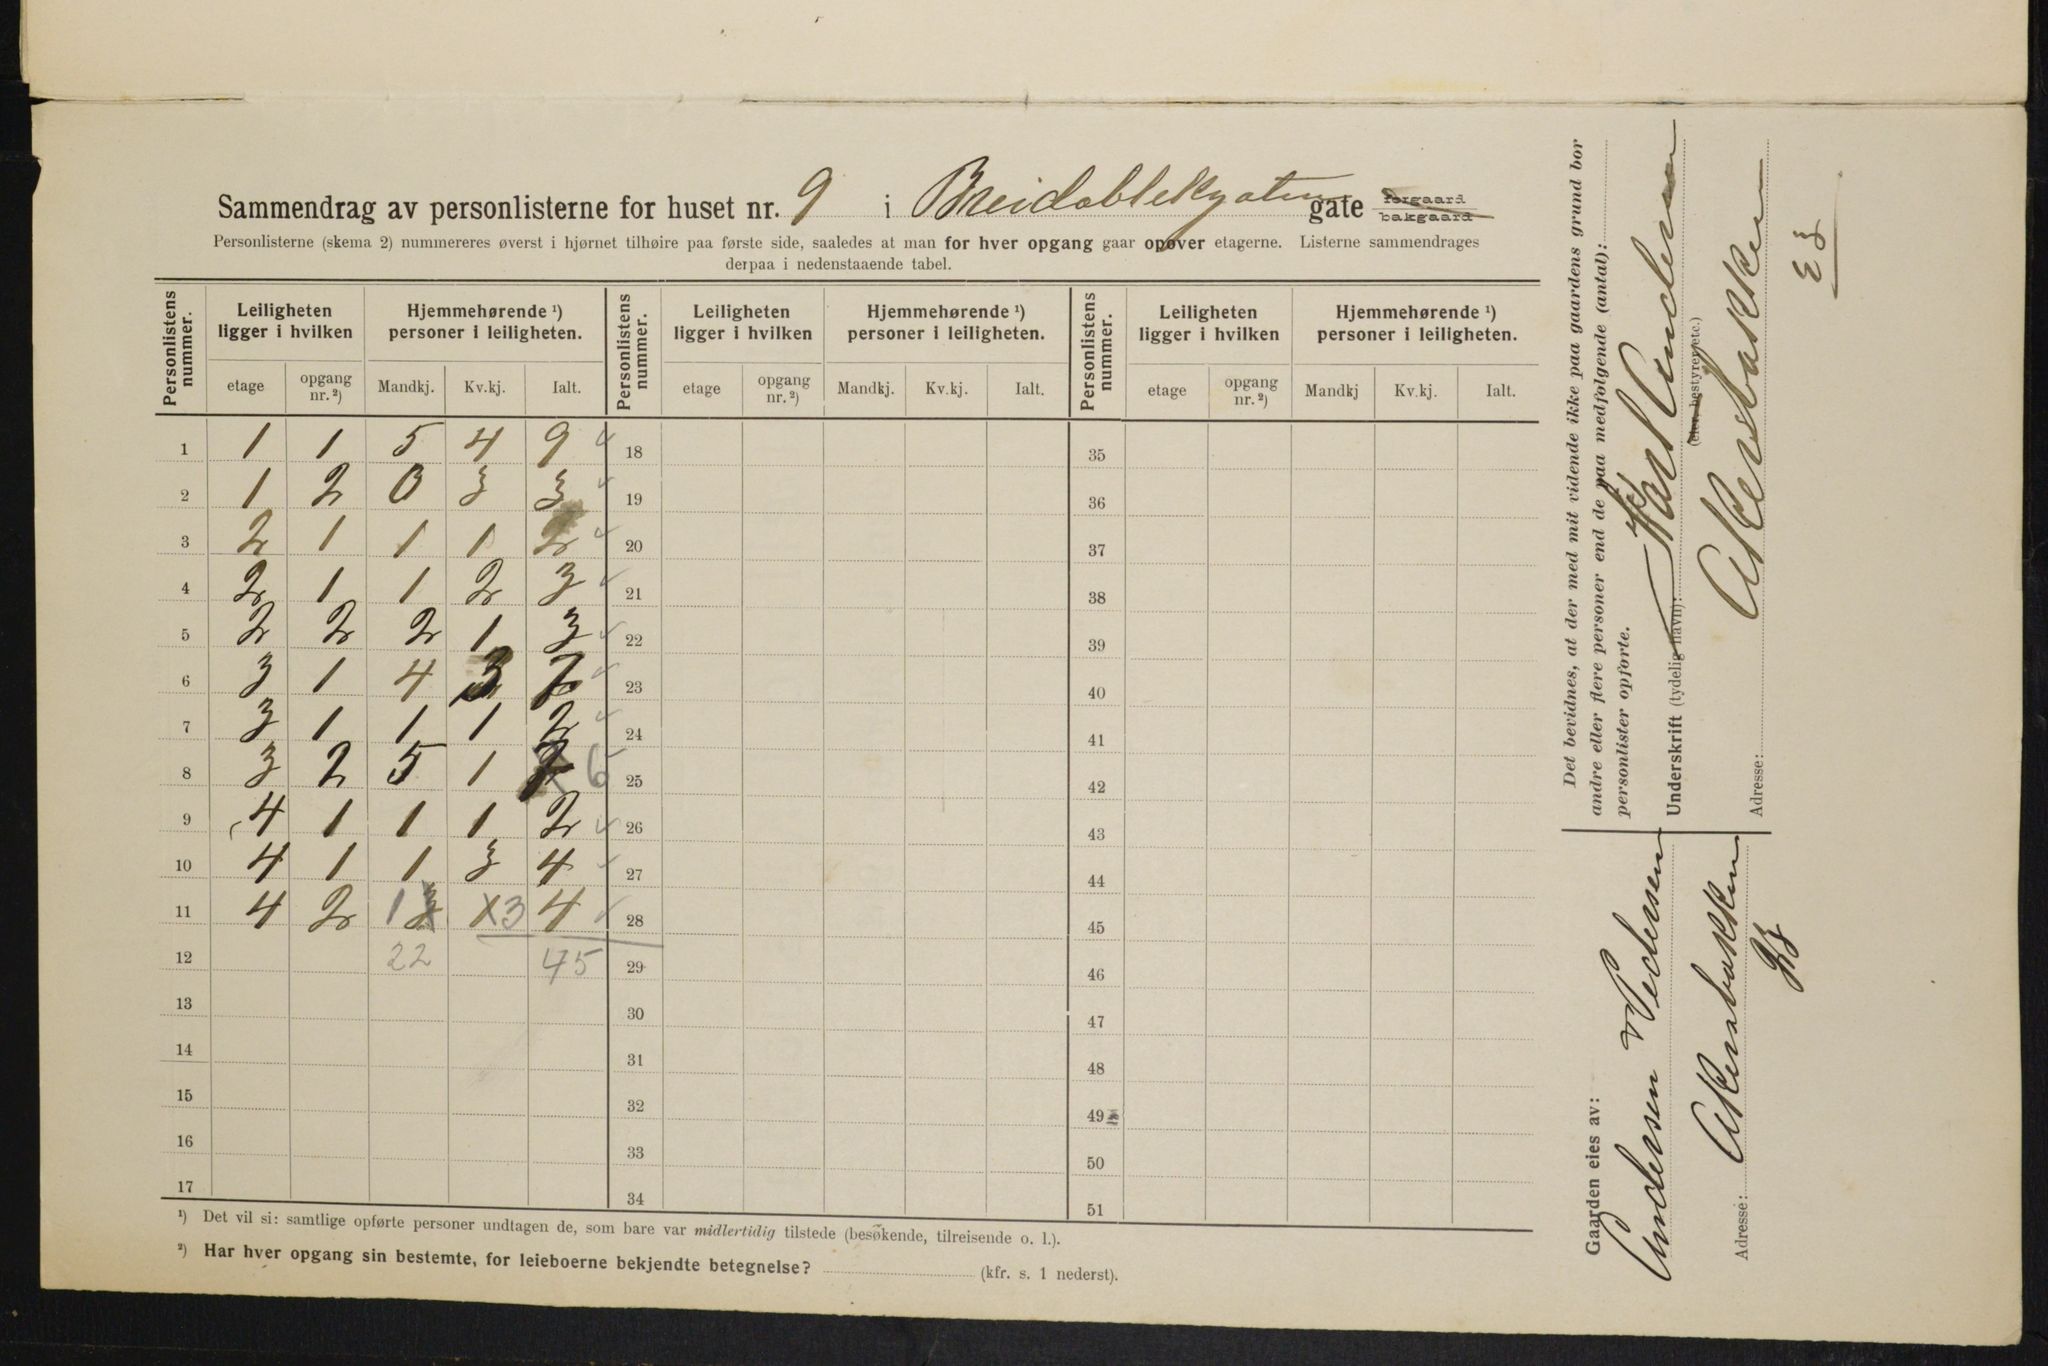 Sammendrag av personlisterne for huset nr. 9 i Breidablekgaten gate forgaard bakgaard
Personlisterne (skema 2) nummereres øverst i hjørnet tilhøire paa første side, saaledes at man for hver opgang gaar opover etagerne. Listerne sammendrages
derpaa i nedenstaaende tabel.
Personlistens nummer. Leiligheten ligger i hvilken Hjemmehørende ¹) personer i leiligheten. Personlistens nummer. Leiligheten ligger i hvilken Hjemmehørende ¹) personer i leiligheten. Personlistens nummer. Leiligheten ligger i hvilken Hjemmehørende ¹) personer i leiligheten.
etage opgang nr. ²) Mandkj. Kv.kj. Ialt. etage opgang nr. ²) Mandkj. Kv.kj. Ialt. etage opgang nr. ²) Mandkj Kv.kj. Ialt.
1 1 1 5 4 9 18 35
2 1 2 0 3 3 19 36
3 2 1 1 1 2 20 37
4 2 1 1 2 3 21 38
5 2 2 2 1 3 22 39
6 3 1 4 3 7 23 40
7 3 1 1 1 2 24 41
8 3 2 5 1 7 6 25 42
9 4 1 1 1 2 26 43
10 4 1 1 3 4 27 44
11 4 2 1 3 1 3 4 28 45
12 22 45 29 46
13 30 47
14 31 48
15 32 49
16 33 50
17 34 51
¹) Det vil si: samtlige opførte personer undtagen de, som bare var midlertidig tilstede (besøkende, tilreisende o. l.).
²) Har hver opgang sin bestemte, for leieboerne bekjendte betegnelse? (kfr. s. 1 nederst).
Det bevidnes, at der med mit vidende ikke paa gaardens grund bor
andre eller flere personer end de paa medfølgende (antal):
personlister opførte.
Karl Andersen
Underskrift (tydelig navn):
(eier, bestyrer etc.)
Akersbakken
Adresse:
Gaarden eies av:
Andersen Pedersen
Akersbakken
Adresse: